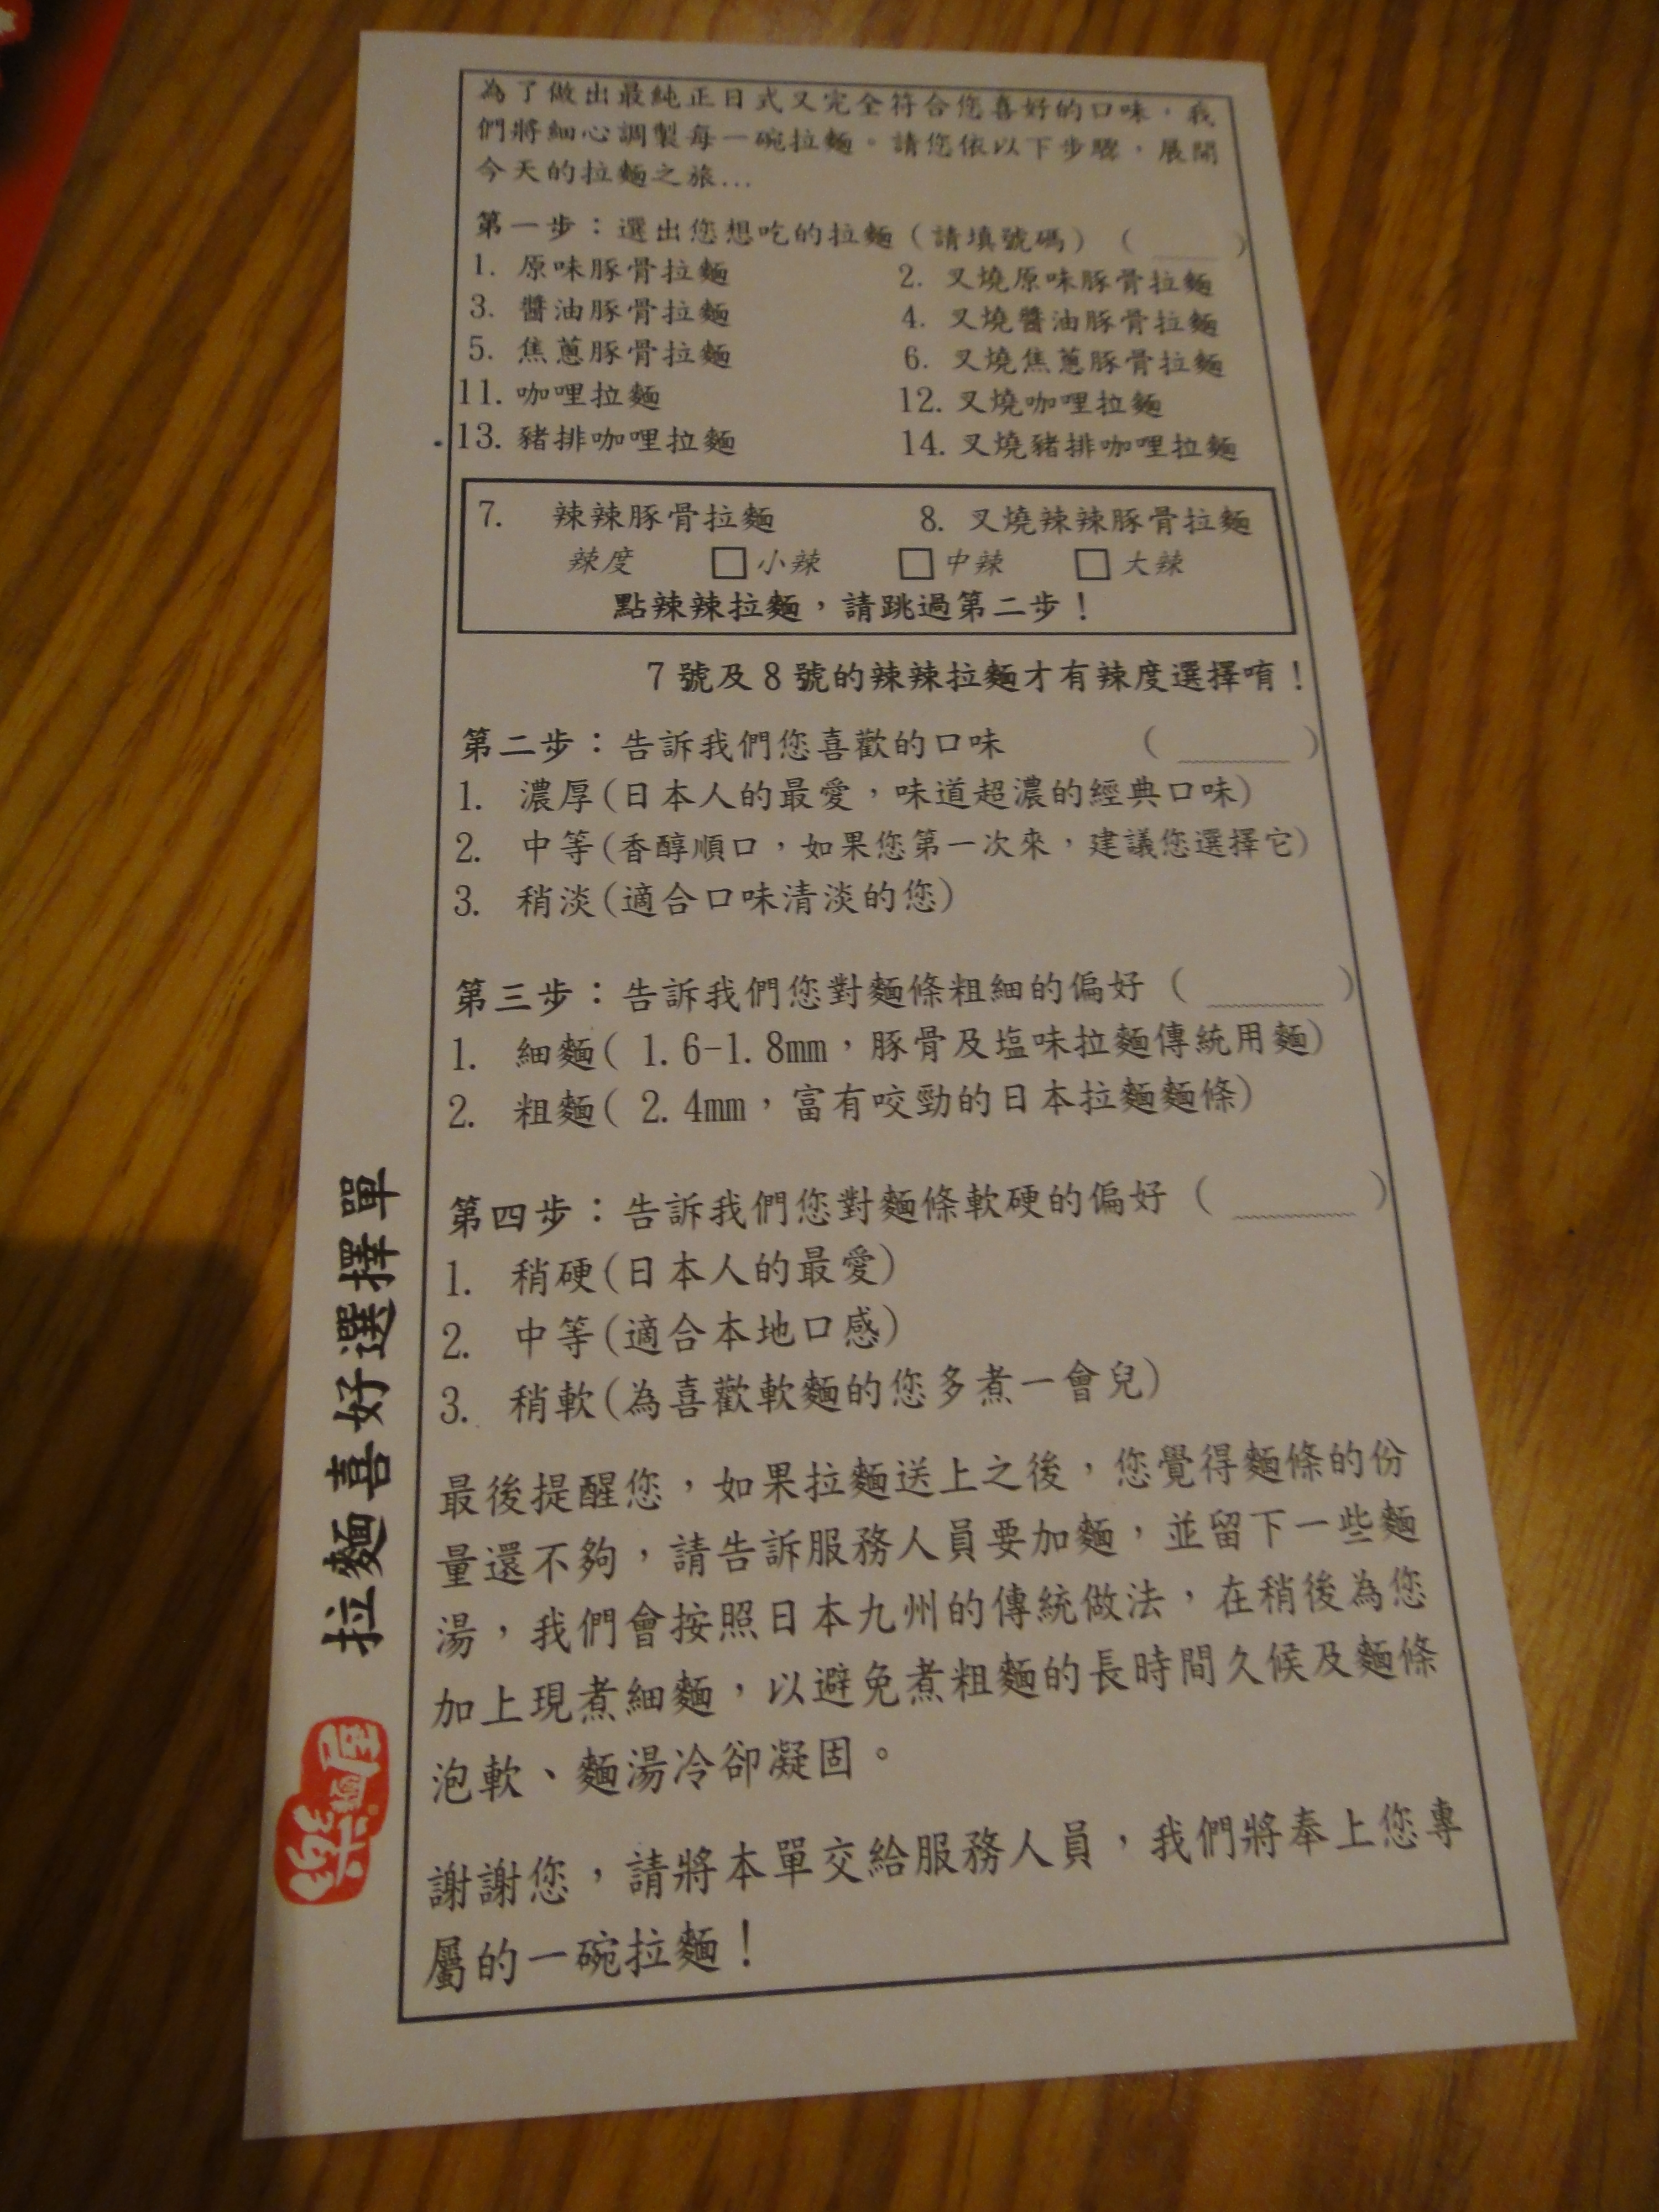 為了做出最純正日式又完全符合您喜好的口味，我
們將細心調製每一碗拉麵。請您依以下步驟，展開
今天的拉麵之旅...
第一步：選出您想吃的拉麵（請填號碼）（　　）
1. 原味豚骨拉麵　2. 叉燒原味豚骨拉麵
3. 醬油豚骨拉麵　4. 叉燒醬油豚骨拉麵
5. 焦蔥豚骨拉麵　6. 叉燒焦蔥豚骨拉麵
11. 咖哩拉麵　12. 叉燒咖哩拉麵
13. 豬排咖哩拉麵　14. 叉燒豬排咖哩拉麵
7. 辣辣豚骨拉麵　8. 叉燒辣辣豚骨拉麵
辣度　□小辣　□中辣　□大辣
點辣辣拉麵，請跳過第二步！
7 號及 8 號的辣辣拉麵才有辣度選擇唷！
第二步：告訴我們您喜歡的口味　（　　）
1. 濃厚(日本人的最愛，味道超濃的經典口味)
2. 中等(香醇順口，如果您第一次來，建議您選擇它)
3. 稍淡(適合口味清淡的您)
第三步：告訴我們您對麵條粗細的偏好（　　）
1. 細麵( 1.6-1.8mm，豚骨及塩味拉麵傳統用麵)
2. 粗麵( 2.4mm，富有咬勁的日本拉麵麵條)
第四步：告訴我們您對麵條軟硬的偏好（　　）
1. 稍硬(日本人的最愛)
2. 中等(適合本地口感)
3. 稍軟(為喜歡軟麵的您多煮一會兒)
最後提醒您，如果拉麵送上之後，您覺得麵條的份
量還不夠，請告訴服務人員要加麵，並留下一些麵
湯，我們會按照日本九州的傳統做法，在稍後為您
加上現煮細麵，以避免煮粗麵的長時間久候及麵條
泡軟、麵湯冷卻凝固。
謝謝您，請將本單交給服務人員，我們將奉上您專
屬的一碗拉麵！
拉麵喜好選擇單